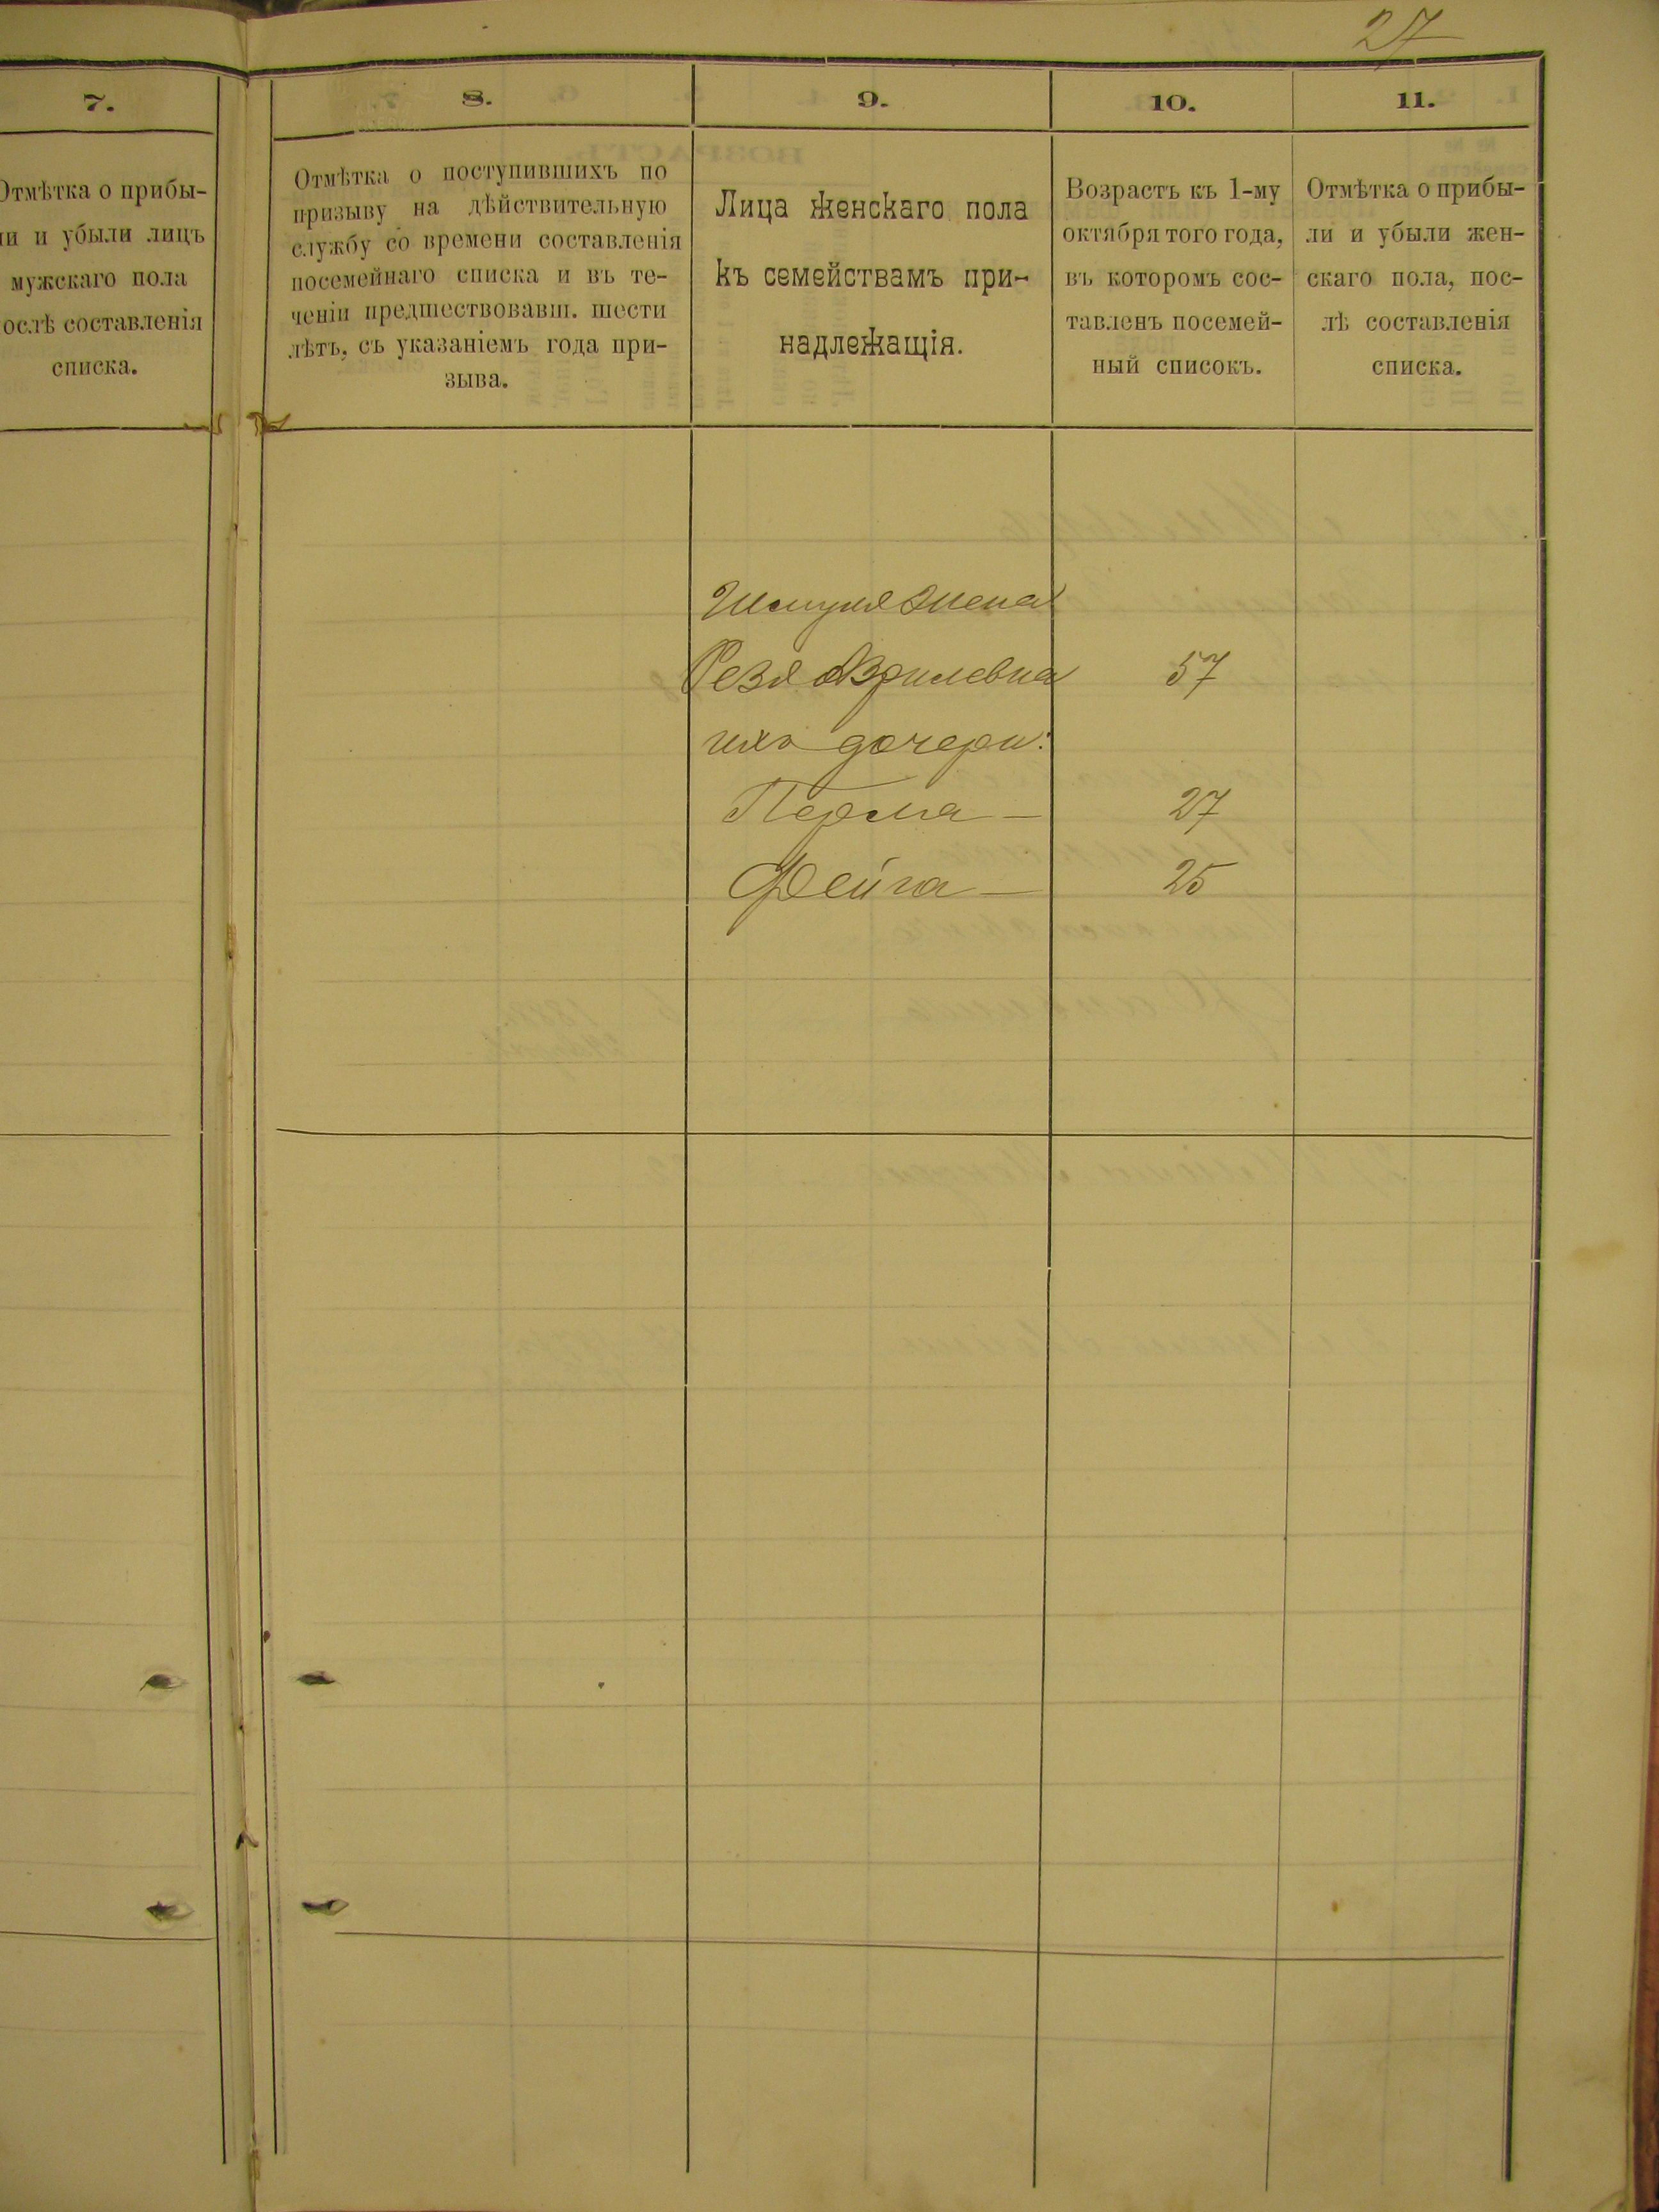 27
7.
Отмѣтка о прибы-
ли и убыли лицъ
мужскаго пола
послѣ составленія
списка.
8.
Отмѣтка о поступившихъ по
призыву на дѣйствительную
службу со времени составленія
посемейнаго списка и въ те-
ченіи предшествовавш. шести
лѣтъ, съ указаніемъ года при-
зыва.
9.
Лица женскаго пола
къ семействамъ при-
надлежащія.
10.
Возрастъ къ 1-му
октября того года,
въ которомъ сос-
тавленъ посемей-
ный списокъ.
11.
Отмѣтка о прибы-
ли и убыли жен-
скаго пола, пос-
лѣ составленія
списка.
Шмуля жена
Резя 57
ихъ дочери:
Перла — 27
Фейга — 25